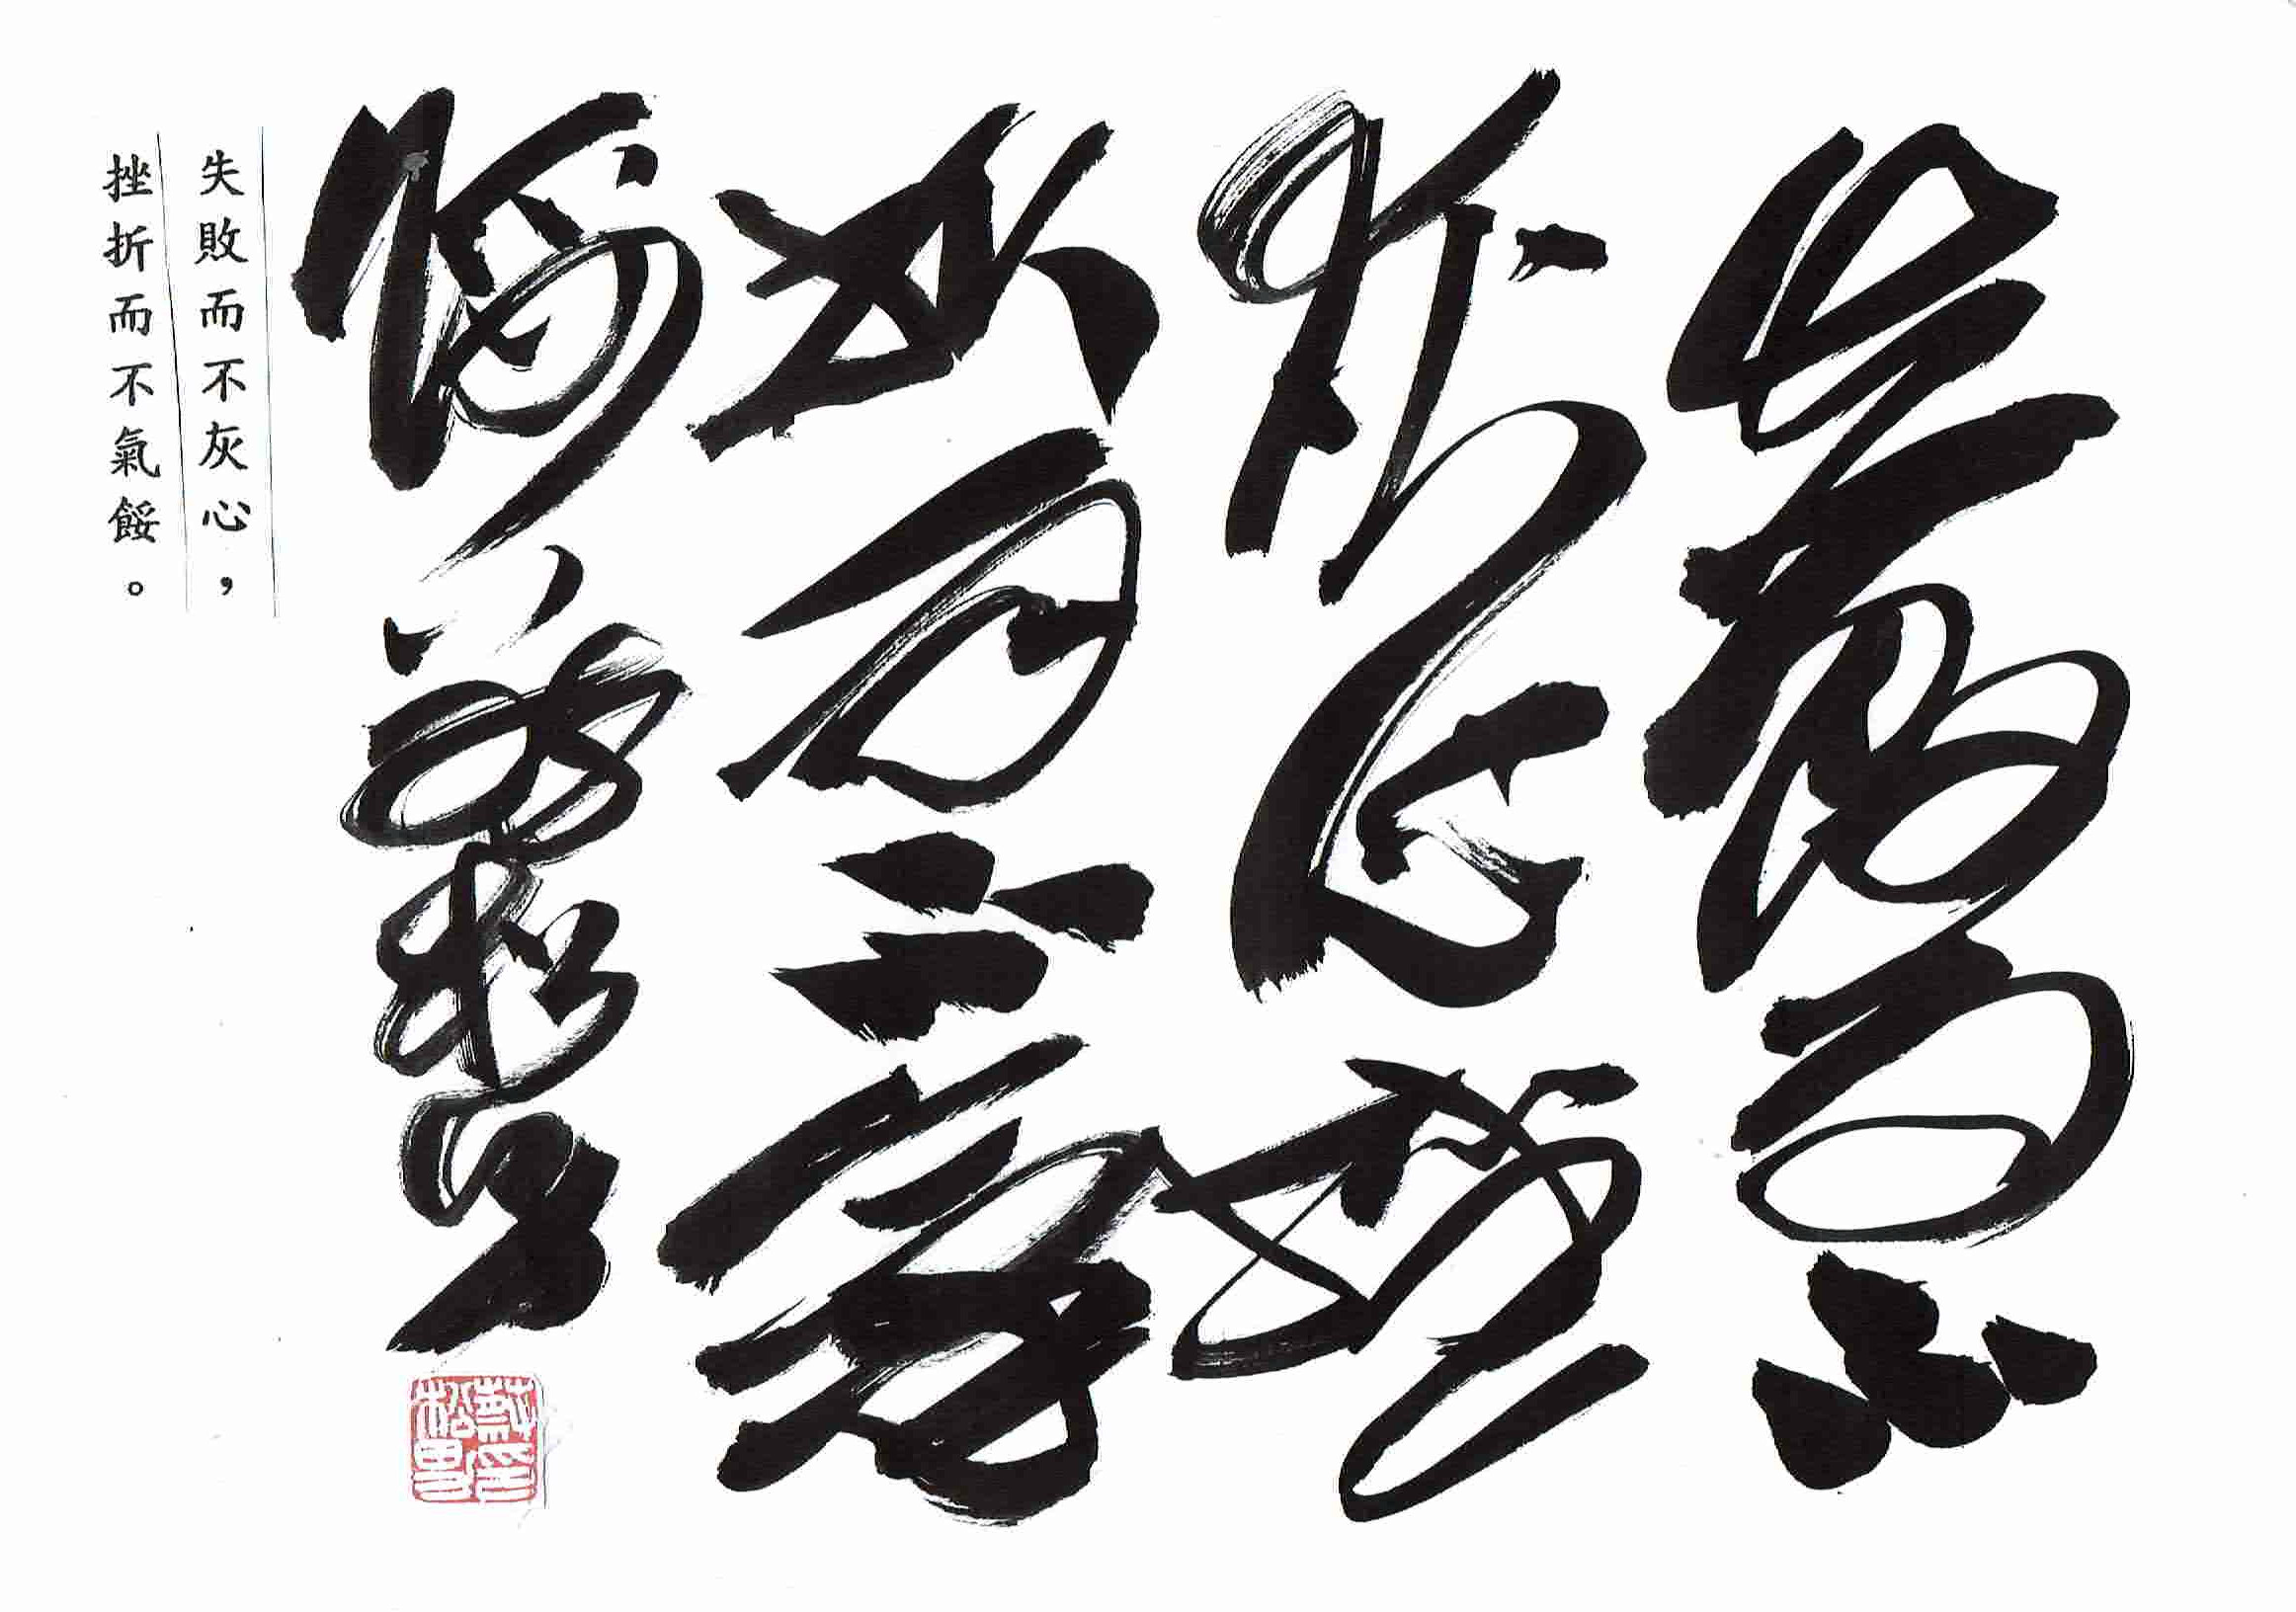 失敗而不
灰心挫
折而不氣
餒 松男
松男印
失敗而不灰心，
挫折而不氣餒。